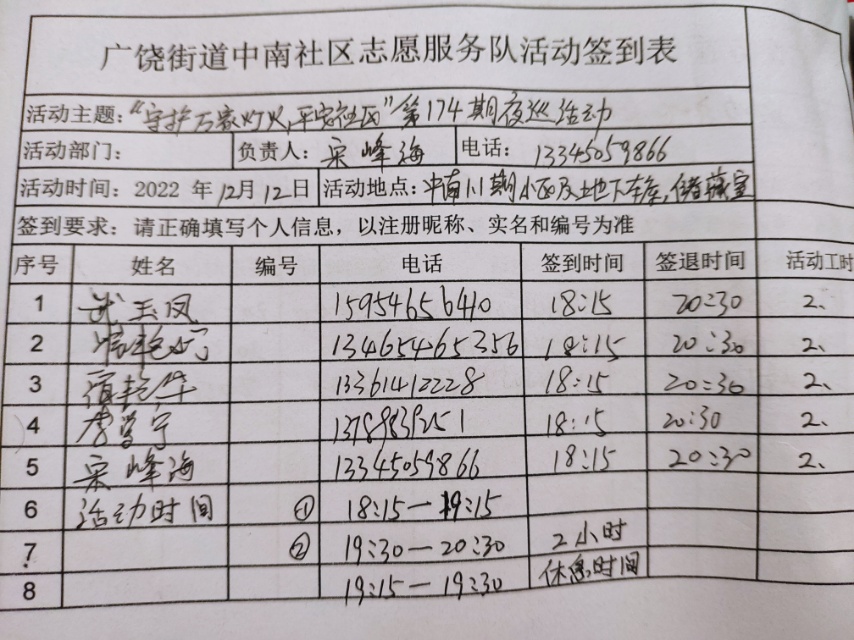 广饶街道中南社区志愿服务队活动签到表
活动主题:“守护万家灯火,平安社区”第174期夜巡活动
活动部门: 负责人: 宋峰海 电话: 13345059866
活动时间: 2022 年12月12日 活动地点: 中南 期小区及地下车库,储藏室
签到要求: 请正确填写个人信息,以注册昵称、实名和编号为准
序号 姓名 编号 电话 签到时间 签退时间 活动工时
1 武玉凤 15954656410 18:15 20:30 2、
2 13465465356 18:15 20:30 2、
3 13361412228 18:15 20:30 2、
4 李学宁 18:15 20:30 2、
5 宋峰海 13345059866 18:15 20:30 2、
6 活动时间 ① 18:15—19:15
7 ② 19:30—20:30 2小时
8 19:15—19:30 休息时间